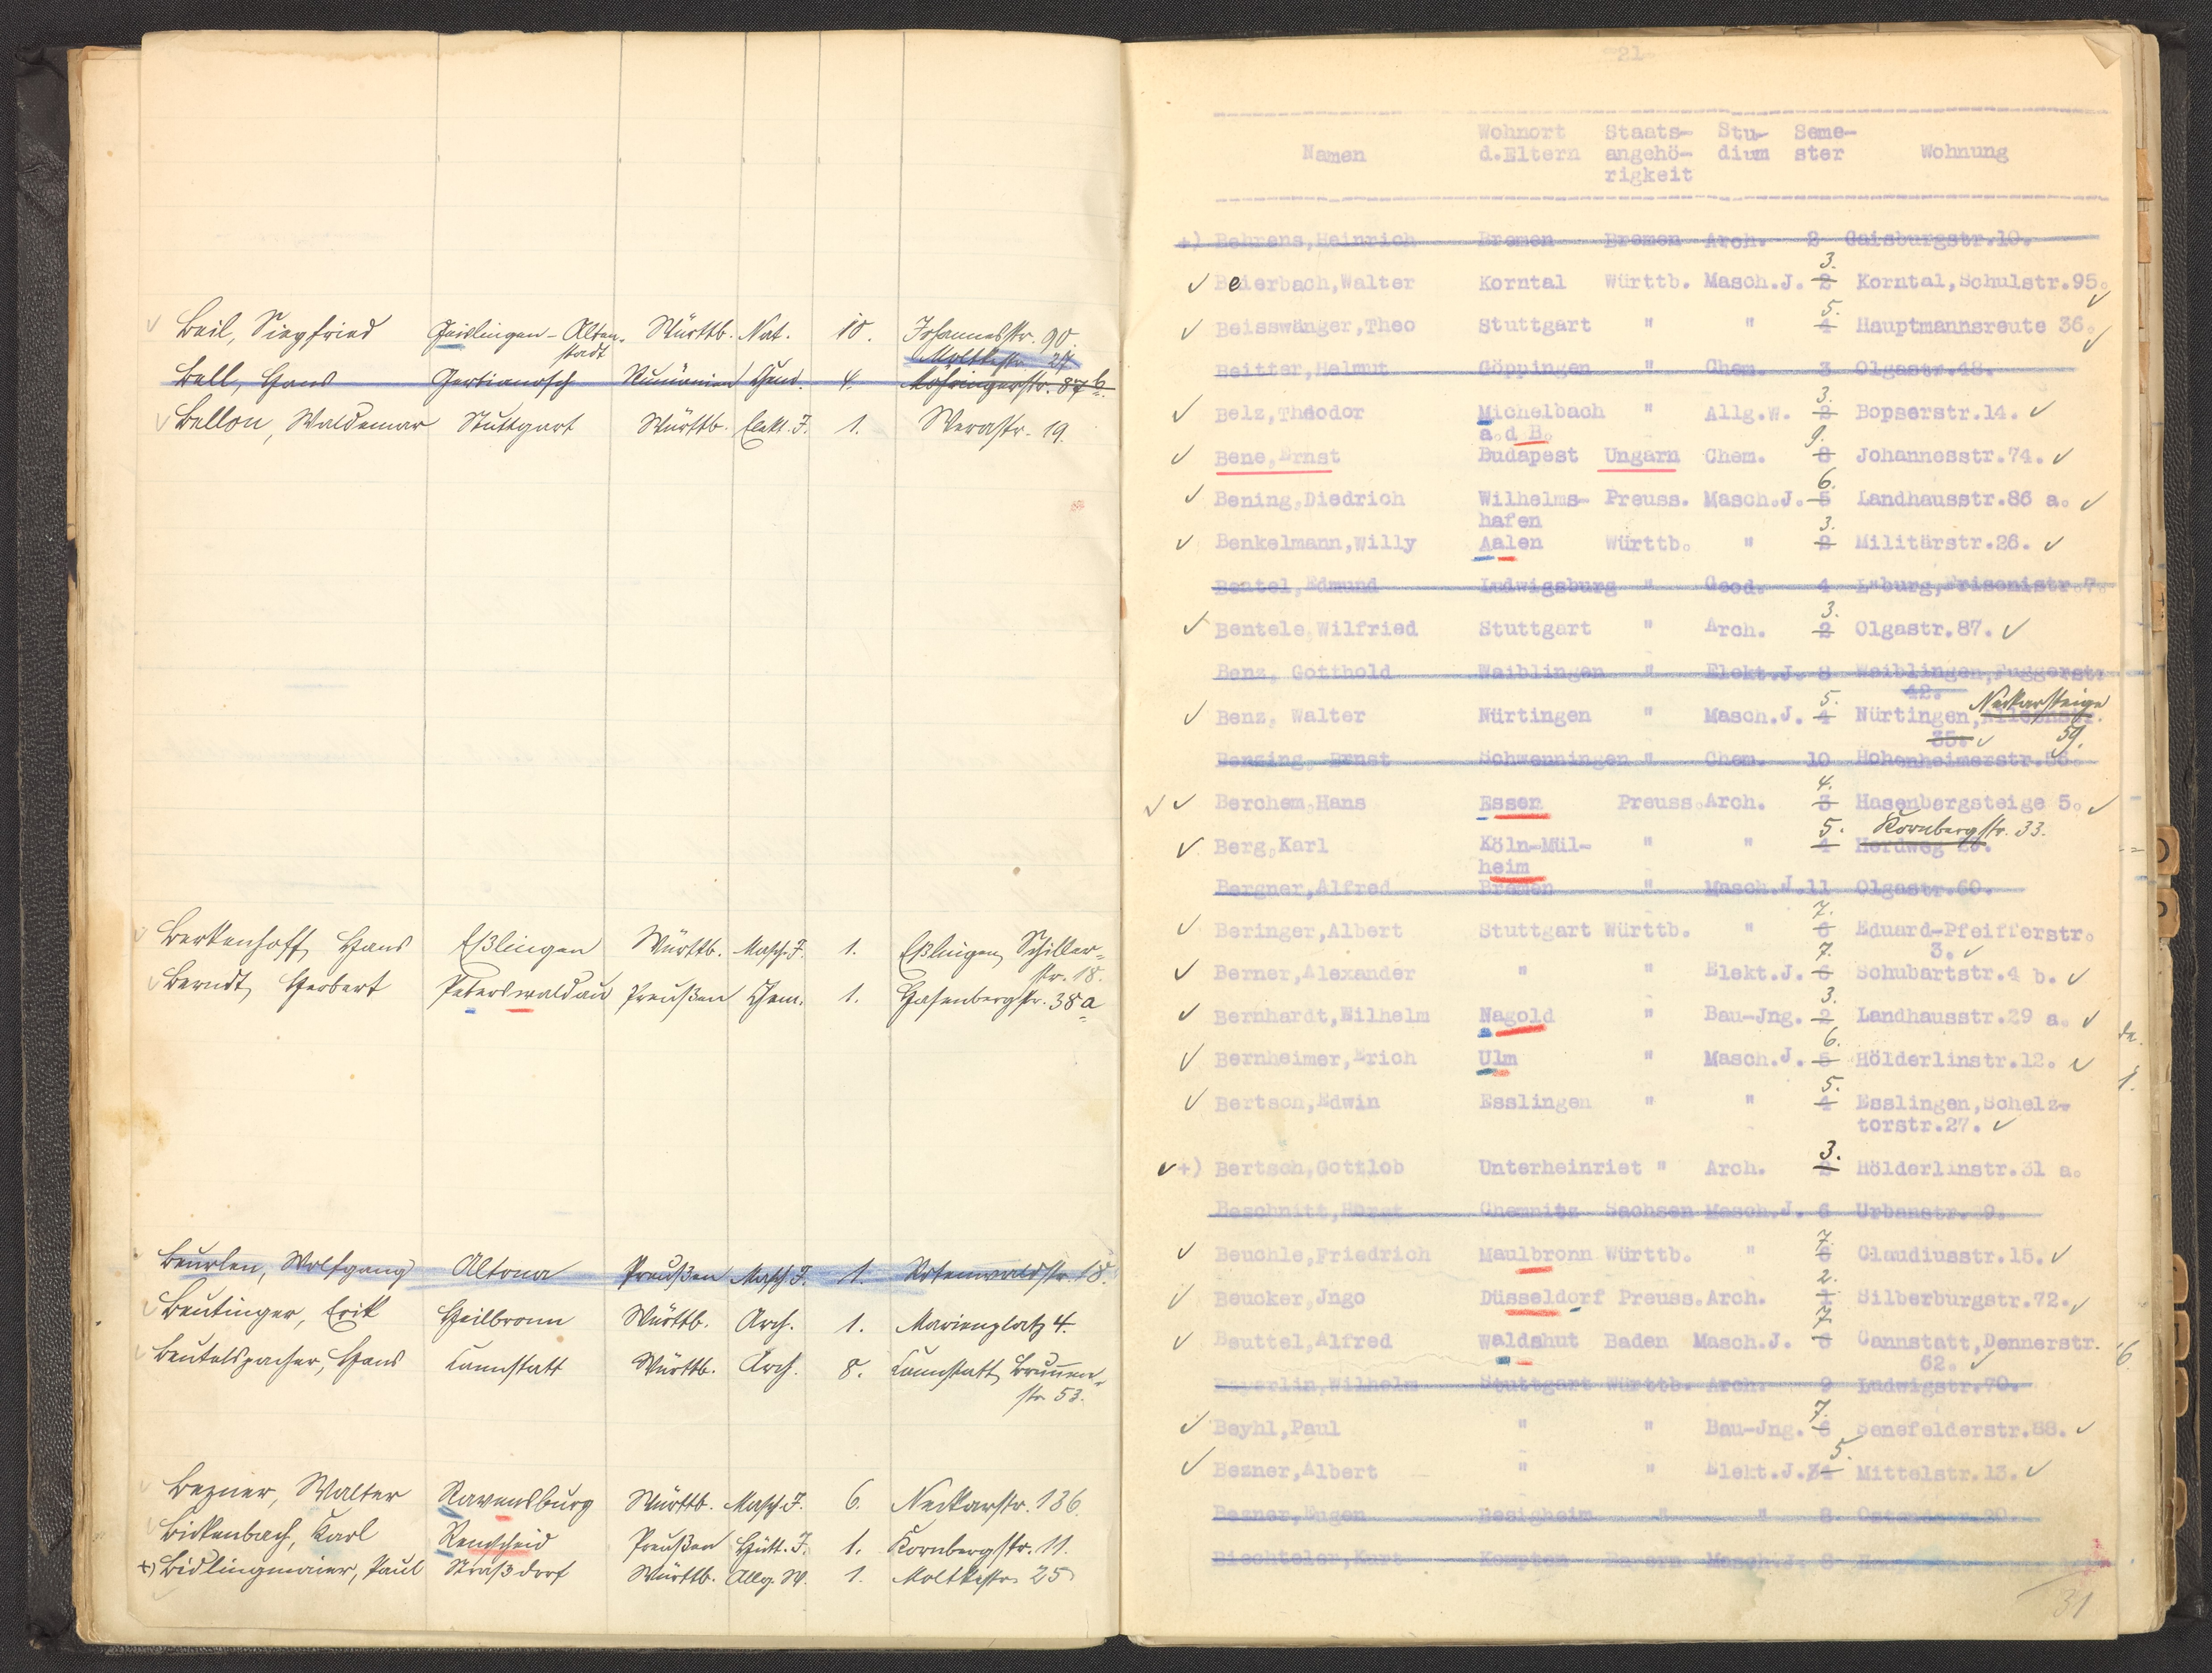 Beil, Siegfried Geislingen-Alten- Württb. Nat. 10. Johannesstr. 90.
stadt Moltkestr. 27
Bell, Hans Gertianosch Rumänien Chem. 4. Möhringerstr. 87 b.
Bellon, Waldemar Stuttgart Württb. Elekt. J. 1. Werastr. 19.
Berkenhoff, Hans Eßlingen Württb. Masch. J. 1. Eßlingen, Schiller-
str. 18.
Berndt, Herbert Peterswaldau Preußen Chem. 1. Hasenbergstr. 38 a
Beurlen, Wolfgang Altona Preußen Masch. J. 1. Rotenwaldstr. 18.
Beutinger, Erik Heilbronn Württb. Arch. 1. Marienplatz 4.
Beutelspacher, Hans Cannstatt Württb. Arch. 8. Cannstatt, Brunnen-
str. 53.
Bezner, Walter Ravensburg Württb. Masch. J. 6. Neckarstr. 136.
Bickenbach, Karl Remscheid Preußen Hütt. J. 1. Kornbergstr. 11.
+) Bidlingmaier, Paul Straßdorf Württb. Allg. W. 1. Moltkestr. 25
-21-
Wohnort Staats- Stu- Seme-
Namen d.Eltern angehö- dium ster Wohnung
rigkeit
+) Behrens,Heinrich Bremen Bremen Arch. 2 Gaisburgstr.10.
3.
Beierbach,Walter Korntal Württb. Masch.J. 2 Korntal,Schulstr.95.
5.
Beisswänger,Theo Stuttgart " " 4 Hauptmannsreute 36.
Beitter,Helmut Göppingen " Chem. 3 Olgastr.48.
3.
Belz,Theodor Michelbach " Allg.W. 2 Bopserstr.14.
a.d B. 9.
Bene,Ernst Budapest Ungarn Chem. 8 Johannesstr.74.
6.
Bening,Diedrich Wilhelms- Preuss. Masch.J. 5 Landhausstr.86 a.
hafen 3.
Benkelmann,Willy Aalen Württb. " 2 Militärstr.26.
Bentel,Edmund Ludwigsburg " Geod. 4 L'burg,Frisonistr.7.
3.
Bentele,Wilfried Stuttgart " Arch. 2 Olgastr.87.
Benz, Gotthold Waiblingen " Elekt.J. 8 Waiblingen,Fuggerstr.
5. 42. Neckarsteige
Benz, Walter Nürtingen " Masch.J. 4 Nürtingen,
35. 59.
Benzing, Ernst Schwenningen " Chem. 10 Hohenheimerstr.56.
4.
Berchem,Hans Essen Preuss. Arch. 3 Hasenbergsteige 5.
5. Kornbergstr. 33.
Berg,Karl Köln-Mül- " " 4 Herdweg
heim
Bergner,Alfred Bremen " Masch.J. 11 Olgastr.60.
7.
Beringer,Albert Stuttgart Württb. " 6 Eduard-Pfeifferstr.
7. 3.
Berner,Alexander " " Elekt.J. 6 Schubartstr.4 b.
3.
Bernhardt,Wilhelm Nagold " Bau-Jng. 2 Landhausstr.29 a.
6.
Bernheimer,Erich Ulm " Masch.J. 5 Hölderlinstr.12.
5.
Bertsch,Edwin Esslingen " " 4 Esslingen,Schelz-
torstr.27.
3.
+) Bertsch,Gottlob Unterheinriet " Arch. 2 Hölderlinstr.31 a.
Beschnitt,Horst Chemnitz Sachsen Masch.J. 6 Urbanstr. 9.
7.
Beuchle,Friedrich Maulbronn Württb. " 6 Claudiusstr.15.
2.
Beucker,Jngo Düsseldorf Preuss. Arch. 1 Silberburgstr.72.
7.
Beuttel,Alfred Waldshut Baden Masch.J. 6 Cannstatt,Dennerstr.
62.
Beyerlin,Wilhelm Stuttgart Württb. Arch. 9 Ludwigstr.70.
7.
Beyhl,Paul " " Bau-Jng. 6 Senefelderstr.88.
5.
Bezner,Albert " " Elekt.J. 4 Mittelstr.13.
Bezner,Eugen Besigheim " " 8
Biechteler,Kurt Kempten Bayern Masch.J. 8
31